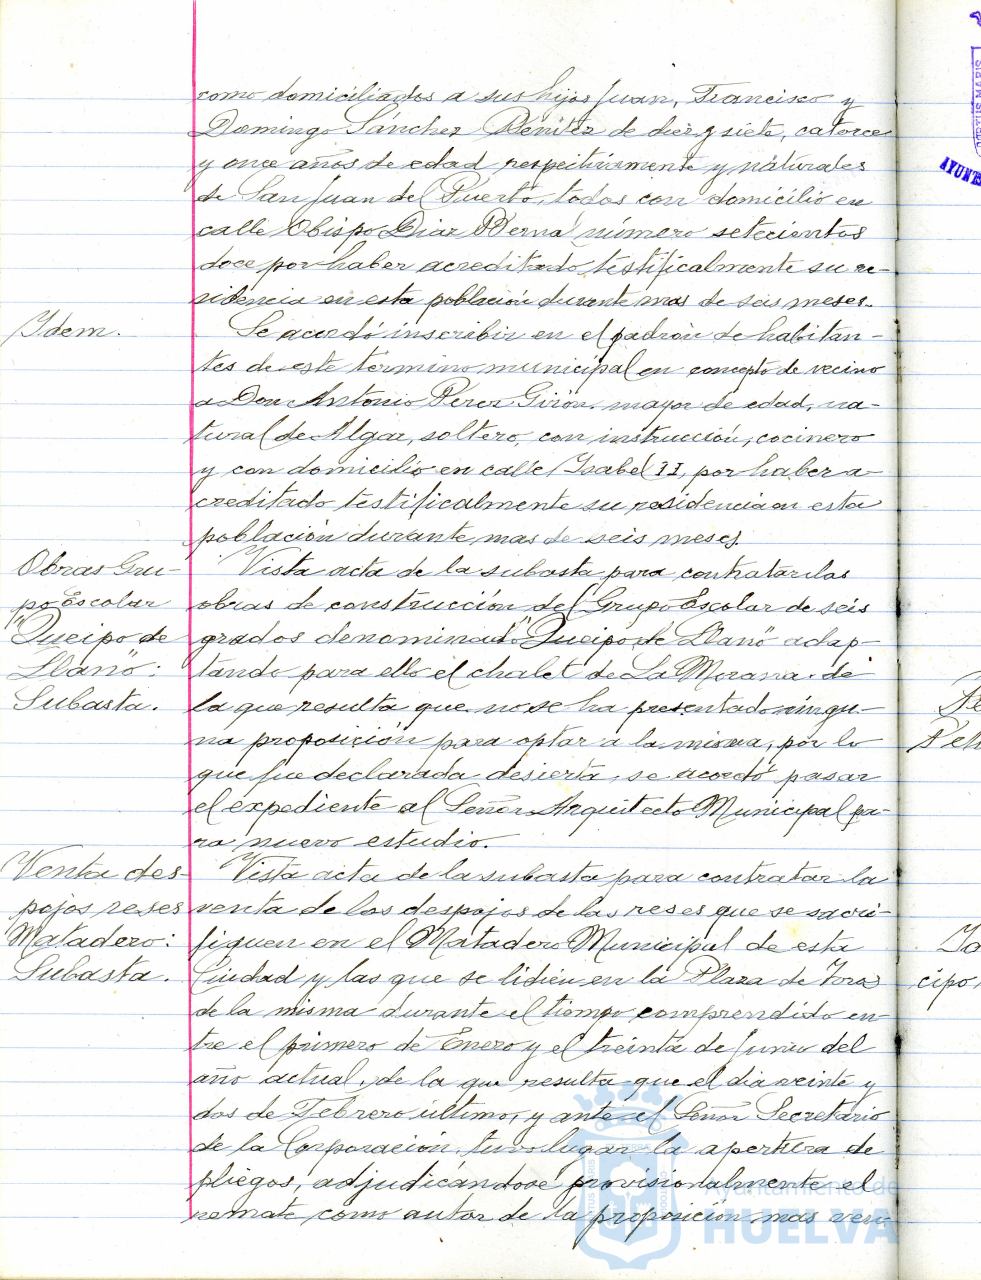 como domiciliados a sus hijos Juan, Francisco y
Domingo Sánchez Benitez de diez y siete, catorce
y once años de edad respectivamente y naturales
de San Juan del Puerto, todos con domicilio en
calle Obispo Diaz Berná número setecientos
doce por haber acreditado testificalmente su re-
sidencia en esta población durante mas de seis meses.
Idem.
Se acordó inscribir en el padrón de habitan-
tes de este término municipal en concepto de vecino
a Don Antonio Perez Girón, mayor de edad, na-
tural de Algar, soltero, con instrucción, cocinero
y con domicilio en calle Isabel II, por haber a-
creditado testificalmente su residencia en esta
población durante mas de seis meses.
Obras Gru-
po Escolar
"Queipo de
Llano":
Subasta.
Vista acta de la subasta para contratar las
obras de construcción del Grupo Escolar de seis
grados denominado "Queipo de Llano" adap-
tando para ello el chalet de La Morana, de
la que resulta que no se ha presentado ningu-
na proposición para optar a la misma, por lo
que fue declarada desierta, se acordó pasar
el expediente al Señor Arquitecto Municipal pa-
ra nuevo estudio.
Venta des-
pojos reses
Matadero:
Subasta.
Vista acta de la subasta para contratar la
venta de los despojos de las reses que se sacri-
fiquen en el Matadero Municipal de esta
Ciudad y las que se lidien en la Plaza de Toros
de la misma durante el tiempo comprendido en-
tre el primero de Enero y el treinta de Junio del
año actual, de la que resulta que el dia veinte y
dos de Febrero último, y ante el Señor Secretario
de la Corporación, tuvo lugar la apertura de
pliegos, adjudicándose provisionalmente el
remate como autor de la proposición mas ven-
Ayuntamiento de
HUELVA